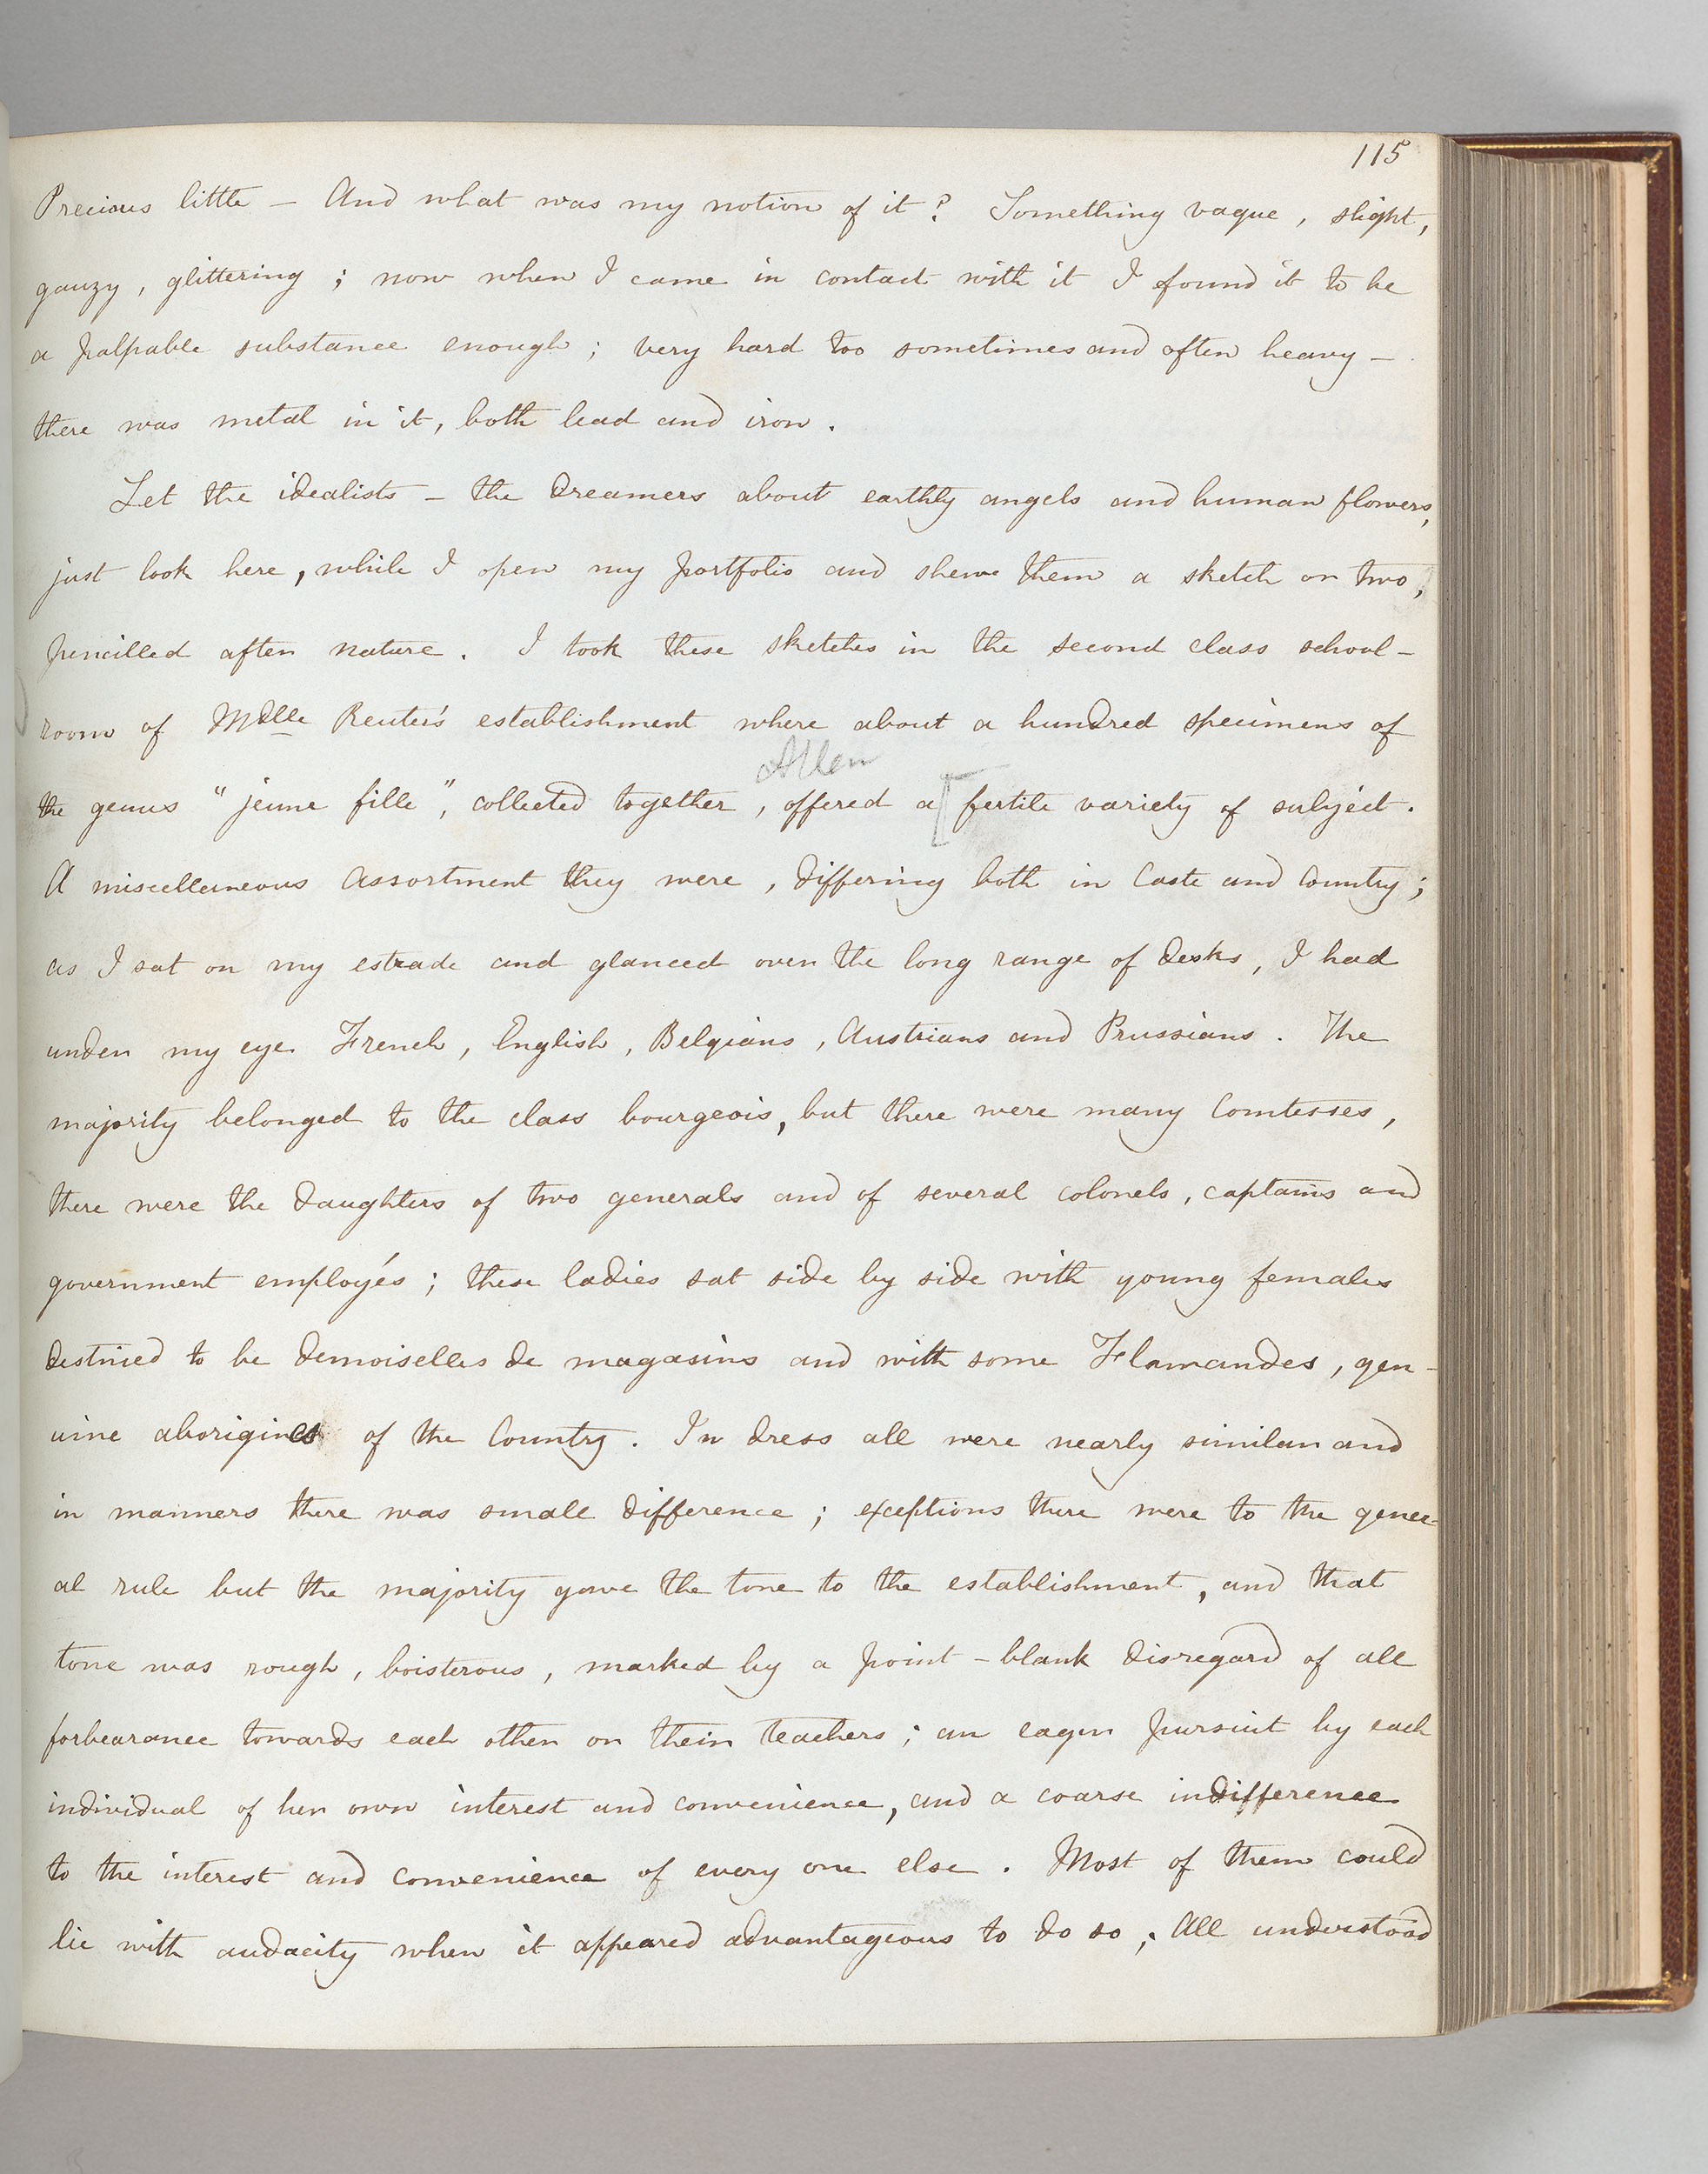 115
Precious little – And what was my notion of it? Something vague, slight,
gauzy, glittering; now when I came in contact with it I found it to be
a palpable substance enough; very hard too sometimes and often heavy –
there was metal in it, both lead and iron.
Let the idealists – the dreamers about earthly angels and human flowers,
just look here, while I open my portfolio and shew them a sketch or two,
pencilled after nature. I took these sketches in the second class school-
room of Mdlle Reuter's establishment where about a hundred specimens of
Allen
the genus "jeune fille", collected together, offered a [fertile variety of subject.
A miscellaneous assortment they were, differing both in Caste and Country;
as I sat on my estrade and glanced over the long range of desks, I had
under my eye French, English, Belgians, Austrians and Prussians. The
majority belonged to the class bourgeois, but there were many Comtesses,
there were the daughters of two generals and of several colonels, captains and
government employés; these ladies sat side by side with young females
destined to be demoiselles de magasins and with some Flamandes, gen-
uine aborigines of the Country. In dress all were nearly similar and
in manners there was small difference; exceptions there were to the gener-
al rule but the majority gave the tone to the establishment, and that
tone was rough, boisterous, marked by a point-blank disregard of all
forbearance towards each other or their teachers; an eager pursuit by each
individual of her own interest and convenience, and a coarse indifference
to the interest and convenience of every one else. Most of them could
lie with audacity when it appeared advantageous to do so; All understood